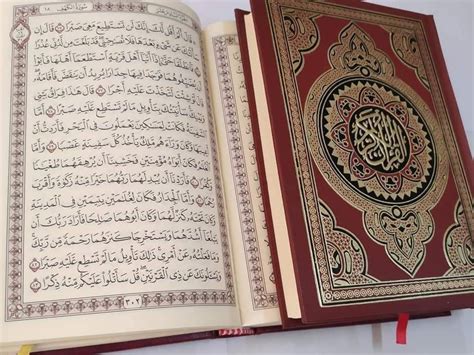 سُورَةُ الكَهْفِ ١٨
الجزء السادس عشر
قَالَ أَلَمْ أَقُل لَّكَ إِنَّكَ لَن تَسْتَطِيعَ مَعِيَ صَبْرًا ٧٥ قَالَ إِن
سَأَلْتُكَ عَن شَيْءٍ بَعْدَهَا فَلَا تُصَاحِبْنِي قَدْ بَلَغْتَ مِن لَّدُنِّي
عُذْرًا ٧٦ فَٱنطَلَقَا حَتَّىٰٓ إِذَآ أَتَيَآ أَهْلَ قَرْيَةٍ ٱسْتَطْعَمَآ أَهْلَهَا
فَأَبَوْاْ أَن يُضَيِّفُوهُمَا فَوَجَدَا فِيهَا جِدَارًا يُرِيدُ أَن يَنقَضَّ فَأَقَامَهُۥ
قَالَ لَوْ شِئْتَ لَتَّخَذْتَ عَلَيْهِ أَجْرًا ٧٧ قَالَ هَٰذَا فِرَاقُ بَيْنِي
وَبَيْنِكَ سَأُنَبِّئُكَ بِتَأْوِيلِ مَا لَمْ تَسْتَطِع عَّلَيْهِ صَبْرًا ٧٨ أَمَّا
ٱلسَّفِينَةُ فَكَانَتْ لِمَسَٰكِينَ يَعْمَلُونَ فِي ٱلْبَحْرِ فَأَرَدتُّ أَنْ
أَعِيبَهَا وَكَانَ وَرَآءَهُم مَّلِكٌ يَأْخُذُ كُلَّ سَفِينَةٍ غَصْبًا ٧٩ وَأَمَّا
ٱلْغُلَٰمُ فَكَانَ أَبَوَاهُ مُؤْمِنَيْنِ فَخَشِينَآ أَن يُرْهِقَهُمَا طُغْيَٰنًا
وَكُفْرًا ٨٠ فَأَرَدْنَآ أَن يُبْدِلَهُمَا رَبُّهُمَا خَيْرًا مِّنْهُ زَكَوٰةً وَأَقْرَبَ
رُحْمًا ٨١ وَأَمَّا ٱلْجِدَارُ فَكَانَ لِغُلَٰمَيْنِ يَتِيمَيْنِ فِي ٱلْمَدِينَةِ
وَكَانَ تَحْتَهُۥ كَنزٌ لَّهُمَا وَكَانَ أَبُوهُمَا صَٰلِحًا فَأَرَادَ رَبُّكَ أَن
يَبْلُغَآ أَشُدَّهُمَا وَيَسْتَخْرِجَا كَنزَهُمَا رَحْمَةً مِّن رَّبِّكَ
وَمَا فَعَلْتُهُۥ عَنْ أَمْرِي ذَٰلِكَ تَأْوِيلُ مَا لَمْ تَسْطِع عَّلَيْهِ صَبْرًا ٨٢
وَيَسْـَٔلُونَكَ عَن ذِي ٱلْقَرْنَيْنِ قُلْ سَأَتْلُواْ عَلَيْكُم مِّنْهُ ذِكْرًا ٨٣
٣٠٢
القرآن الكريم